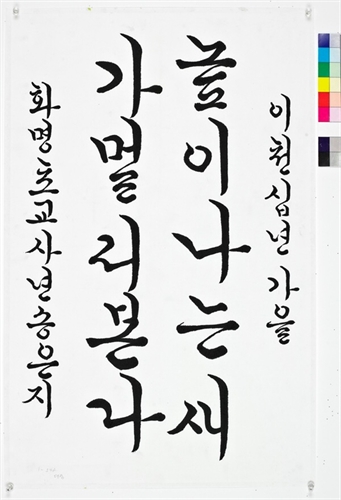 이천십년 가을
높이나는새
가멀리본다
화명초교사년송은지